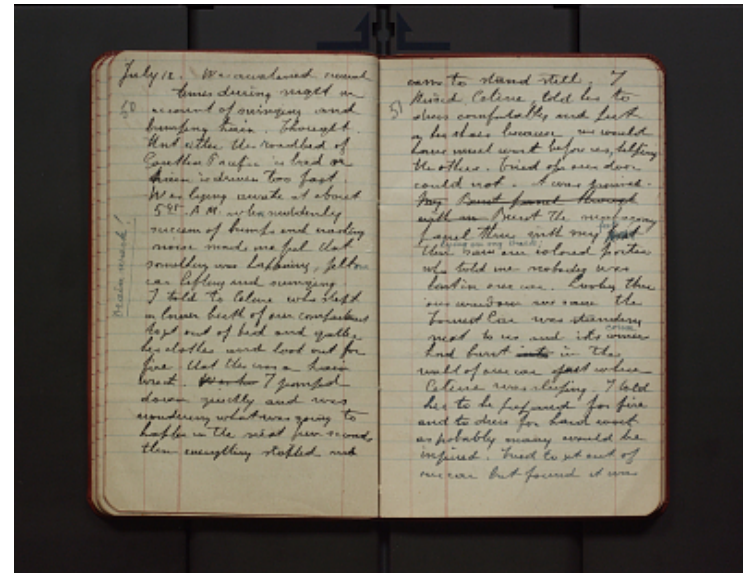 July 12. Was awakened several
times during night on
50
account of swinging and
bumping train. Thought
that either the roadbed of
Southern Pacific is bad or
train is driven too fast
Was lying awake at about
5 A.M. when suddenly
succession of bumps and crashing
noise made me feel that
something was happening, felt our
car lifting and swinging.
train wreck!
I told to Celine who slept
in lower berth of our compartment
to get out of bed and gather
her clothes and look out for
fire. that this was a train
wreck. I jumped
down quickly and was
wondering what was going to
happen in the next few seconds
then everything stopped and
came to stand still. I
Celine, told her to
51
dress comfortably and put
on her shoes because we would
have much work before us, helping
the others. Tried open our door
could not. It was jammed.
My Burst panel through
with an Burst the
panel then with my feet
lying on my back!
then saw our colored porter
who told me nobody was
hurt in our car. Looking thru
our window we saw the
Tourist Car was standing
next to us and its corner
had burst in the
wall of our car just where
Celine was sleeping. I told
her to be prepared for fire
and to dress for hard work
as probably many would be
injured. Tried to get out of
our car but found it was